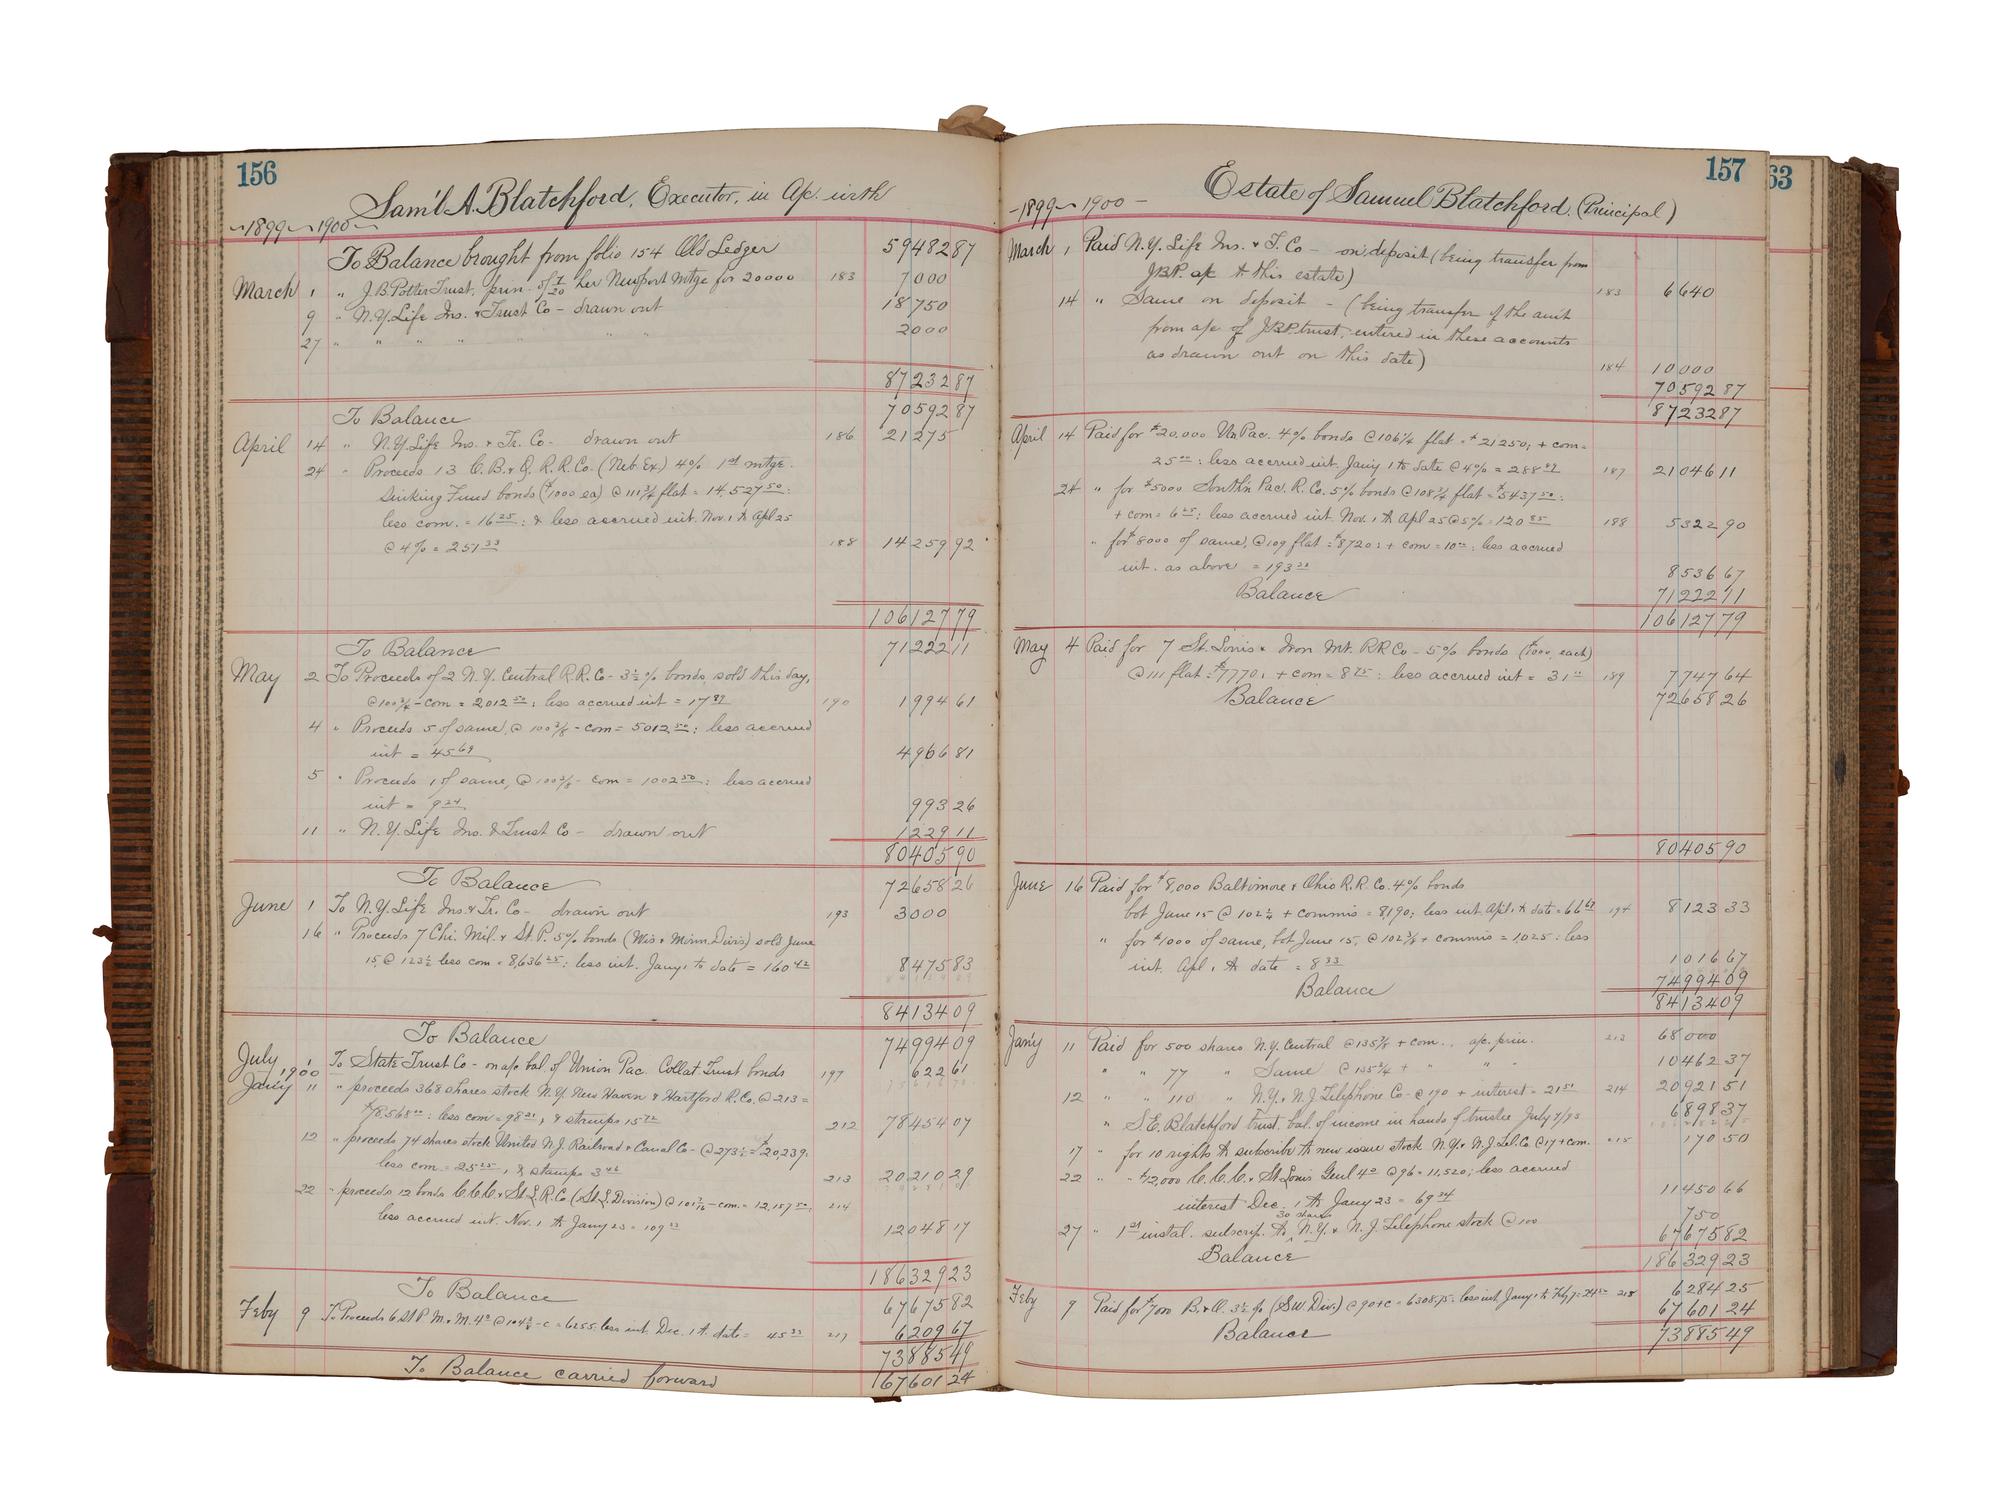 156
Sam'l A. Blatchford, Executor, in A/c. with
1899 1900
To Balance brought from folio 154 Old Ledger 59482 87
March 1 " J.B. Potter Trust, prin. of 7/20 her Newport mtge for 20000 183 7000
9 " N.Y. Life Ins. & Trust Co - drawn out 18750
27 " " " " " " " 2000
87232 87
To Balance 70592 87
April 14 " N.Y. Life Ins. & Tr. Co - drawn out 186 21275
24 " Proceeds 13 C.B. & Q. R.R. Co. (Neb. Ex.) 4% 1st mtge.
Sinking Fund bonds ($1000 ea) @ 111 3/4 flat = 14,527 50 :
less com. = 16 25 : & less accrued int. Nov. 1 to Apl 25
@ 4% = 251 33 188 14259 92
106127 79
To Balance 71222 11
May 2 To Proceeds of 2 N.Y. Central R.R. Co - 3 1/2 % bonds, sold this day,
@ 100 3/4 - com = 2012 50 : less accrued int = 17 89 190 1994 61
4 " Proceeds 5 of same, @ 100 3/8 - com = 5012 50 : less accrued
int = 45 69 4966 81
5 " Proceeds 1 of same, @ 100 3/8 - com = 1002 50 : less accrued
int = 9 24 993 26
11 " N.Y. Life Ins. & Trust Co - drawn out 1229 11
80405 90
To Balance 72658 26
June 1 To N.Y. Life Ins. & Tr. Co - drawn out 193 3000
16 " Proceeds 7 Chi. Mil. & St. P. 5% bonds (Wis & Minn. Divis) sold June
15, @ 123 1/2 less com = 8,636 25 : less int. Jany 1 to date = 160 42 8475 83
84134 09
To Balance 74994 09
July 1 To State Trust Co - on a/c bal. of Union Pac. Collat Trust bonds 197 622 61
1900
Jan'y 11 " proceeds 368 shares stock N.Y. New Haven & Hartford R. Co. @ 213 =
$78,568 00 : less com = 98 21, & stamps 15 72 212 78454 07
12 " proceeds 74 shares stock United N.J. Railroad & Canal Co - @ 273 1/2 = $20,239;
less com = 25 25, & stamps 3 46 213 20210 29
22 " proceeds 12 bonds C.C.C. & St. L. R. Co (St. L. Division) @ 101 7/16 - com = 12,157 50 : 214
less accrued int. Nov. 1 to Jany 23 = 109 33 12048 17
186329 23
To Balance 67675 82
Feby 9 To Proceeds 6 St P. M. & M. 4s @ 104 3/8 - c = 6255. less int. Dec. 1 to date = 45 33 217 6209 67
73885 49
To Balance carried forward 67601 24
157
63
Estate of Samuel Blatchford. (Principal)
-1899 1900 -
March 1 Paid N.Y. Life Ins. & T. Co - on deposit (being transfer from
J.B.P. a/c to this estate) 183 6640
14 " Same on deposit - (being transfer of the amt
from a/c of J.B.P. trust, entered in these accounts
as drawn out on this date) 184 10000
70592 87
87232 87
April 14 Paid for $20,000 Un Pac. 4% bonds @ 106 1/4 flat = $21250; + com =
25 00 : less accrued int. Jany 1 to date @ 4% = 288 89 187 21046 11
24 " for $5000 South'n Pac. R. Co. 5% bonds @ 108 3/4 flat = $5437 50 :
+ com = 6 25 : less accrued int. Nov. 1 to Apl 25 @ 5% = 120 85 188 5322 90
" for $8000 of same, @ 109 flat = $8720 : + com = 10 00 : less accrued
int. as above = 193 33 8536 67
Balance 71222 11
106127 79
May 4 Paid for 7 St. Louis & Iron Mt. RR Co - 5% bonds ($1000, each)
@ 111 flat = $7770; + com = 8 75 : less accrued int = 31 11 189 7747 64
Balance 72658 26
80405 90
June 16 Paid for $8,000 Baltimore & Ohio R.R. Co. 4% bonds
bot June 15 @ 102 1/4 + commis = 8190; less int. Apl. 1 to date = 66 67 194 8123 33
" for $1000 of same, bot June 15, @ 102 3/8 + commis = 1,025 : less
int. Apl 1 to date = 8 33 1016 67
Balance 74994 09
84134 09
Jan'y 11 Paid for 500 shares N.Y. Central @ 135 7/8 + com., a/c. prin. 213 68000
" " 77 " Same @ 135 3/4 + " " " 10462 37
12 " " 110 " N.Y. & N.J. Telephone Co - @ 190 + interest = 21 51 214 20921 51
" S.E. Blatchford trust, bal. of income in hands of trustee July 7/93 6898 37
17 " for 10 rights to subscribe to new issue stock N.Y. & N.J. Tel. Co. @ 17 + com. 215 170 50
22 " " $12,000 C.C.C. & St Louis Genl 4s @ 96 = 11,520; less accrued
interest Dec. 1 to Jany 23 = 69 34 11450 66
27 " 1st instal. subscrip. to 30 shares N.Y. & N.J. Telephone stock @ 100 750
Balance 67675 82
186329 23
Feby 9 Paid for $7000 B. & O. 3 1/2 % (S.W. Div.) @ 90 + c = 6308.75 : less int. Jany 1 to Feby 9 = 24 50 218 6284 25
Balance 67601 24
73885 49